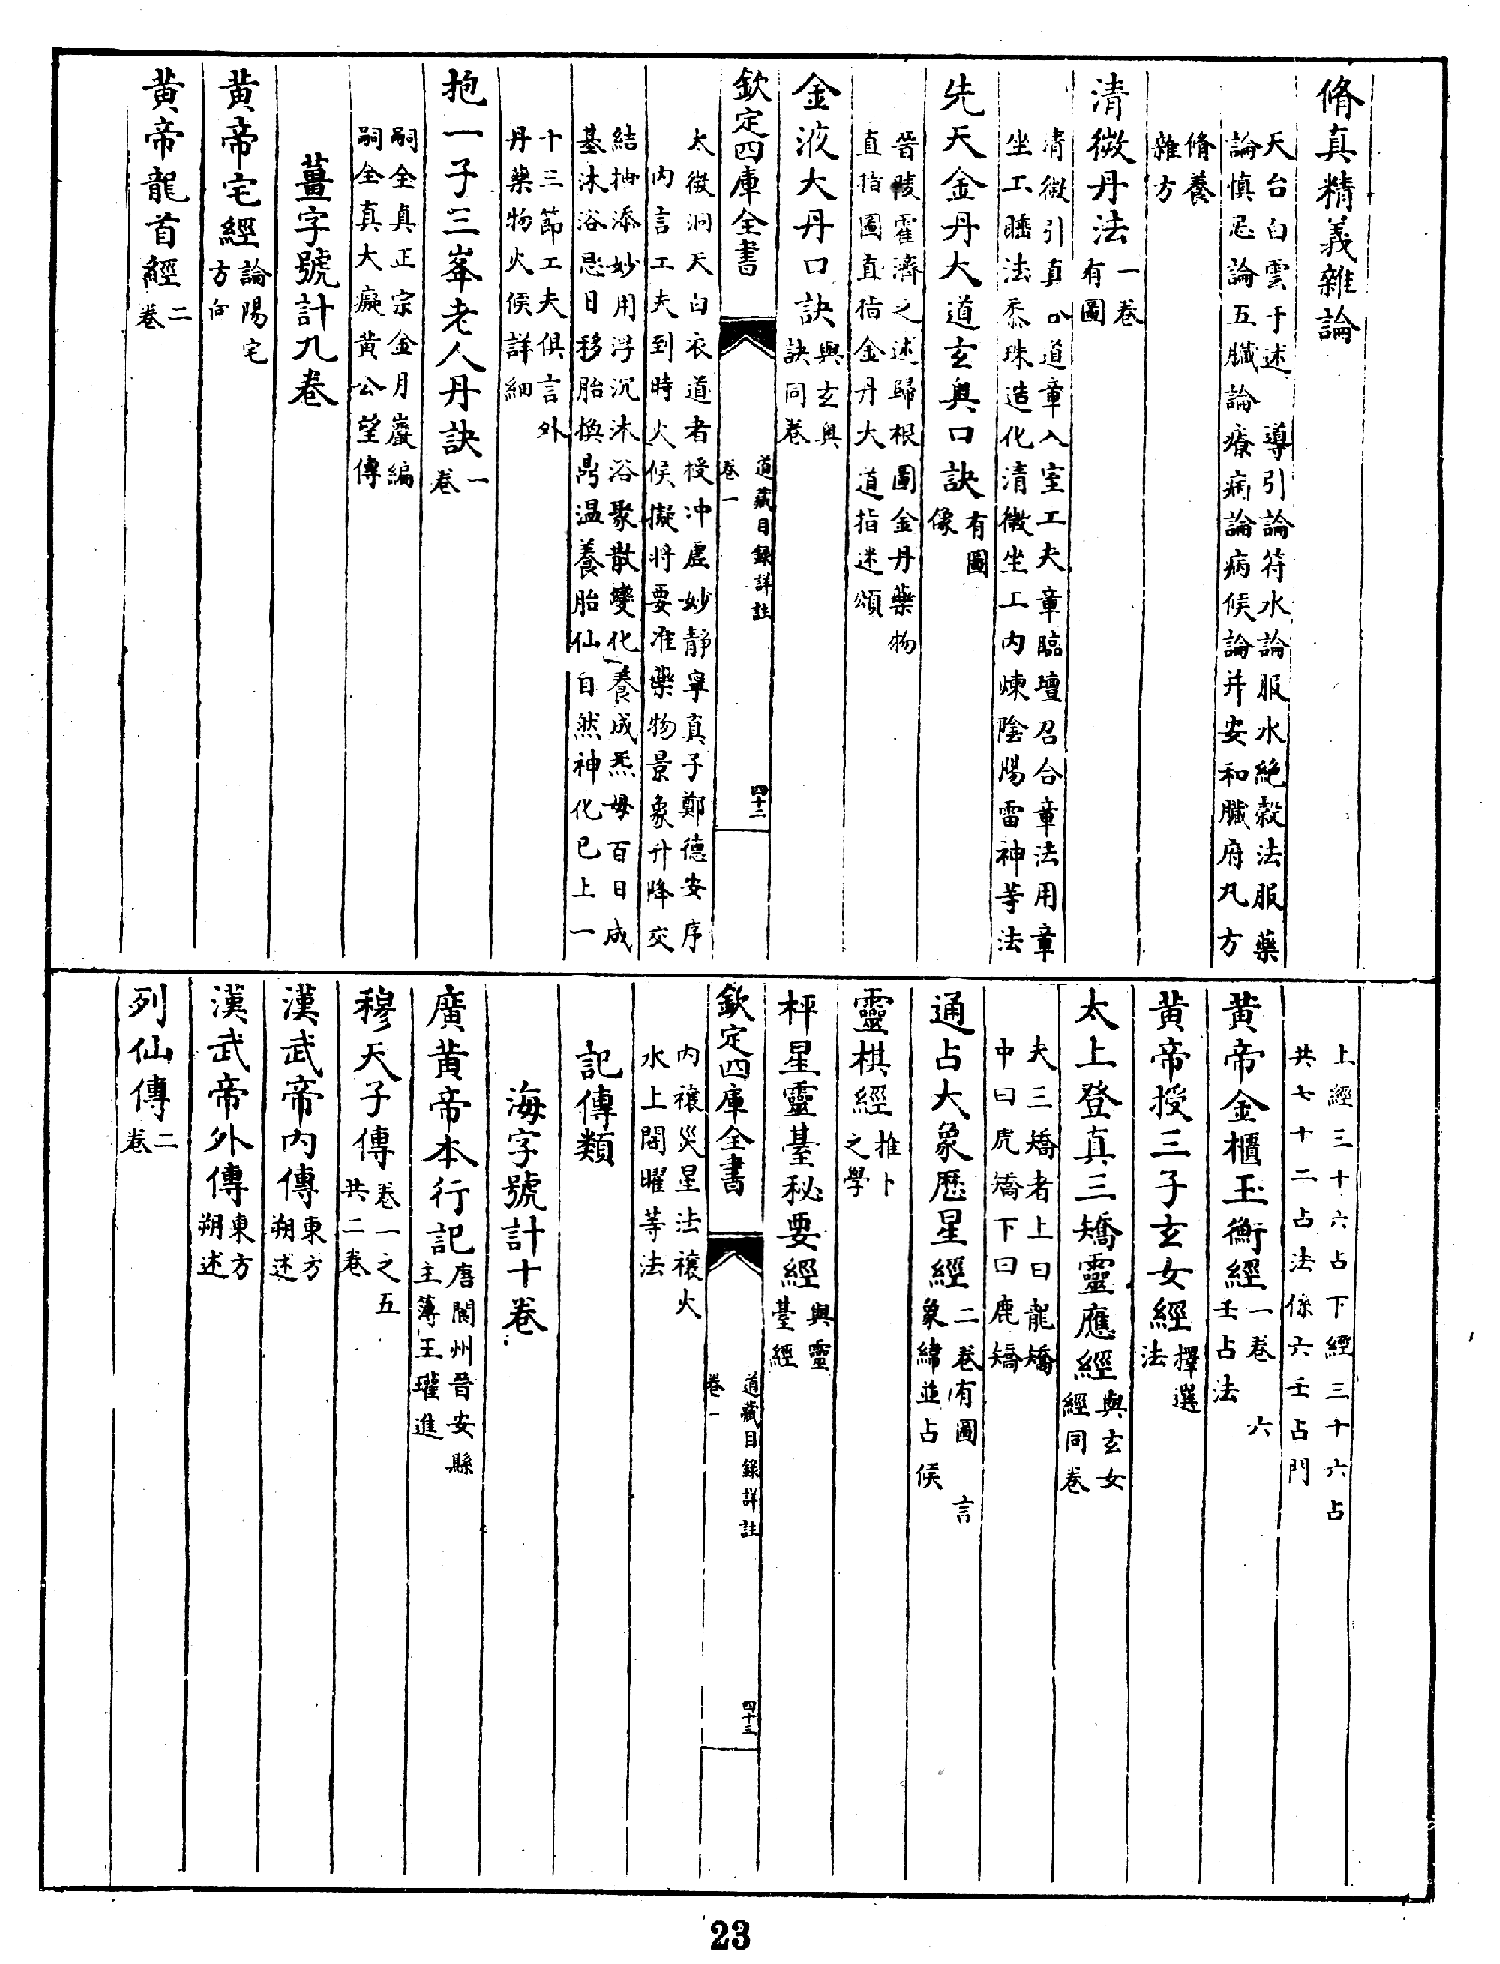 脩真精義雜論
天台白雲子述　導引論符水論服水絶穀法服藥
論慎忌論五臟論療病論病候論并安和臟府丸方
脩養
雜方
清微丹法
一卷
有圖
清微引真公道章入室工夫章臨壇召合章法用章
坐工睡法黍珠造化清微坐工内煉隂陽雷神等法
先天金丹大道玄奥口訣
有圖
像
晉陵霍濟之述歸根圖金丹藥物
直指圖直指金丹大道指迷頌
金液大丹口訣
與玄奥
訣同卷
欽定四庫全書
道藏目録詳註
卷一
四十二
太微洞天白衣道者授冲虚妙靜寧真子鄭德安序
内言工夫到時火候擬將要准藥物景象升降交
結抽添妙用浮沉沐浴聚散變化養成炁母百日成
基沐浴忌日移胎換鼎温養胎仙自然神化已上一
十三節工夫俱言外
丹藥物火候詳細
抱一子三峯老人丹訣
一
卷
嗣全真正宗金月巖編
嗣全真大癡黄公望傳
薑字號計九卷
黄帝宅經
論陽宅
方向
黄帝龍首經
二
卷
上經三十六占下經三十六占
共七十二占法係六壬占門
黄帝金櫃玉衡經
一卷　六
壬占法
黄帝授三子玄女經
擇選
法
太上登真三矯靈應經
與玄女
經同卷
夫三矯者上曰龍矯
中曰虎矯下曰鹿矯
通占大象歴星經
二卷有圖　言
象緯並占候
靈棋經
推卜
之學
枰星靈臺秘要經
與靈
臺經
欽定四庫全書
道藏目録詳註
卷一
四十三
内禳災星法禳火
水上閣曜等法
記傳類
海字號計十卷
廣黄帝本行記
唐閬州晉安縣
主薄王瓘進
穆天子傳
卷一之五
共二卷
漢武帝内傳
東方
朔述
漢武帝外傳
東方
朔述
列仙傳
二
卷
23